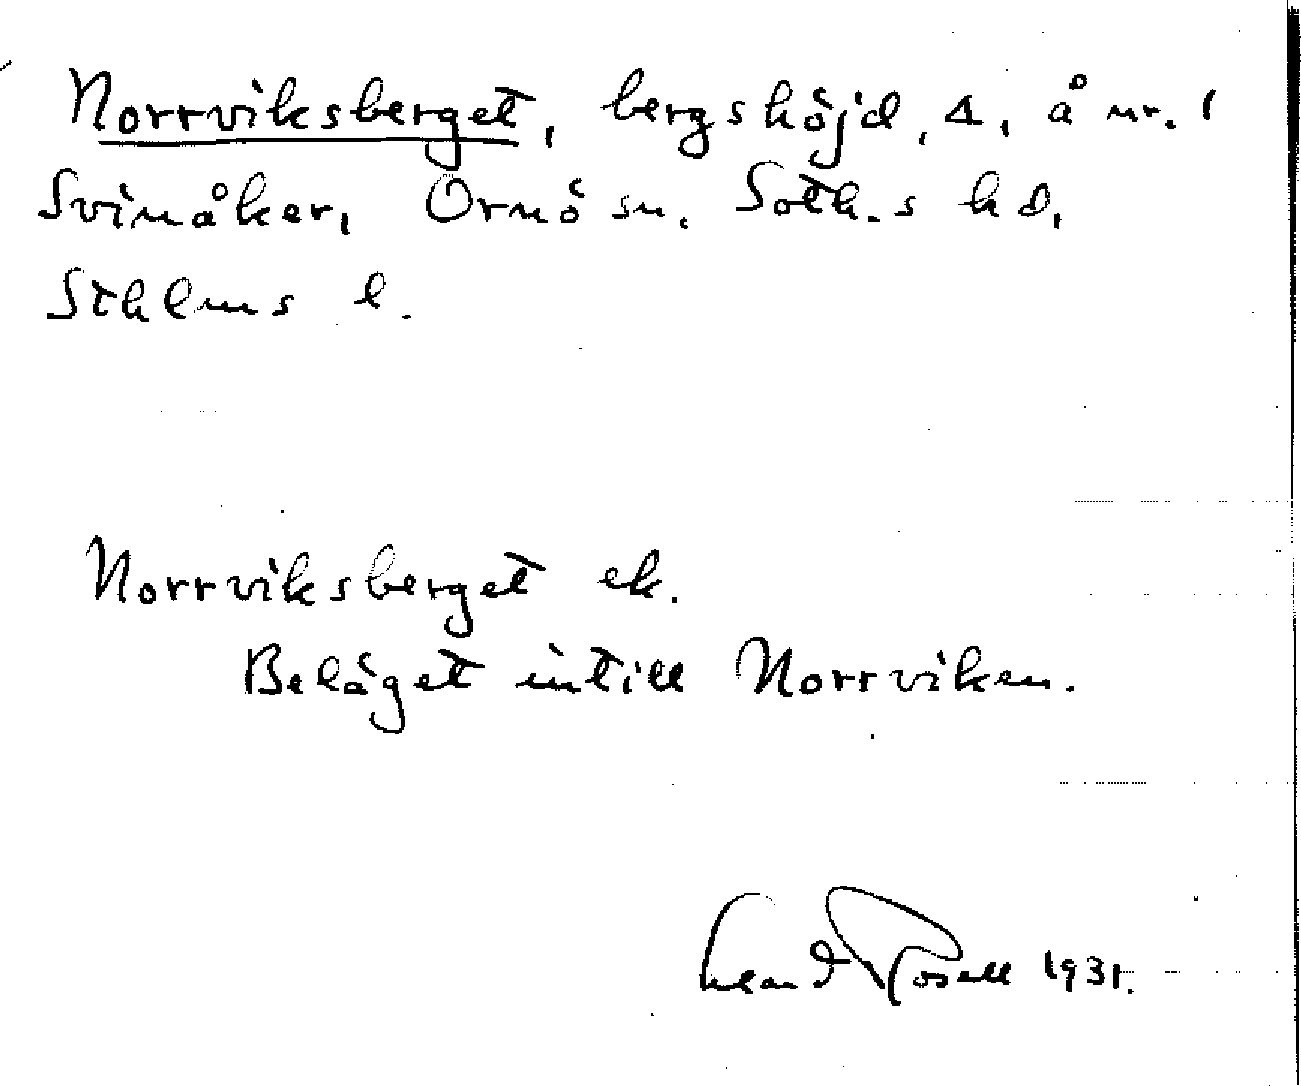 Norrviksberget, bergshöjd, 4, å nr. 1
Svinåker, Ornö sn. Soth.s hd,
Sthlms l.
Norrviksberget ek.
Beläget intill Norrviken.
Rosell 1931.